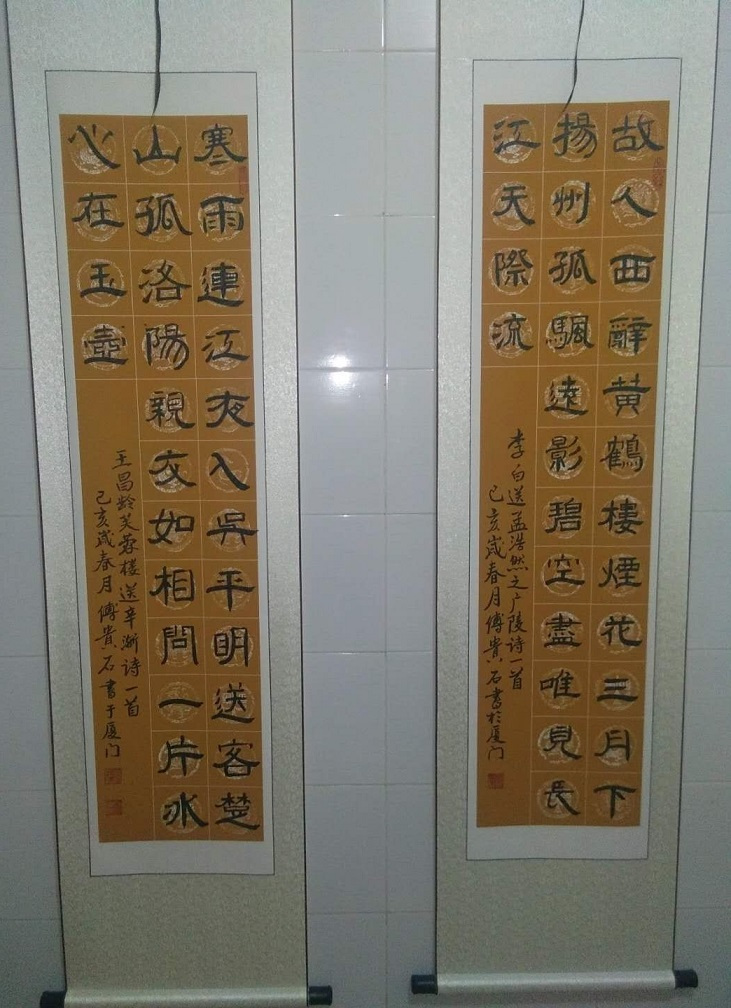 故人西辭黄鶴樓煙花三月下
揚州孤颿遠影碧空盡唯見長
江天際流
李白送孟浩然之广陵诗一首
己亥歲春月傅貴石書於厦门
寒雨連江夜入吳平明送客楚
山孤洛陽親友如相問一片冰
心在玉壺
王昌龄芙蓉楼送辛渐诗一首
己亥歲春月傅貴石書于厦门